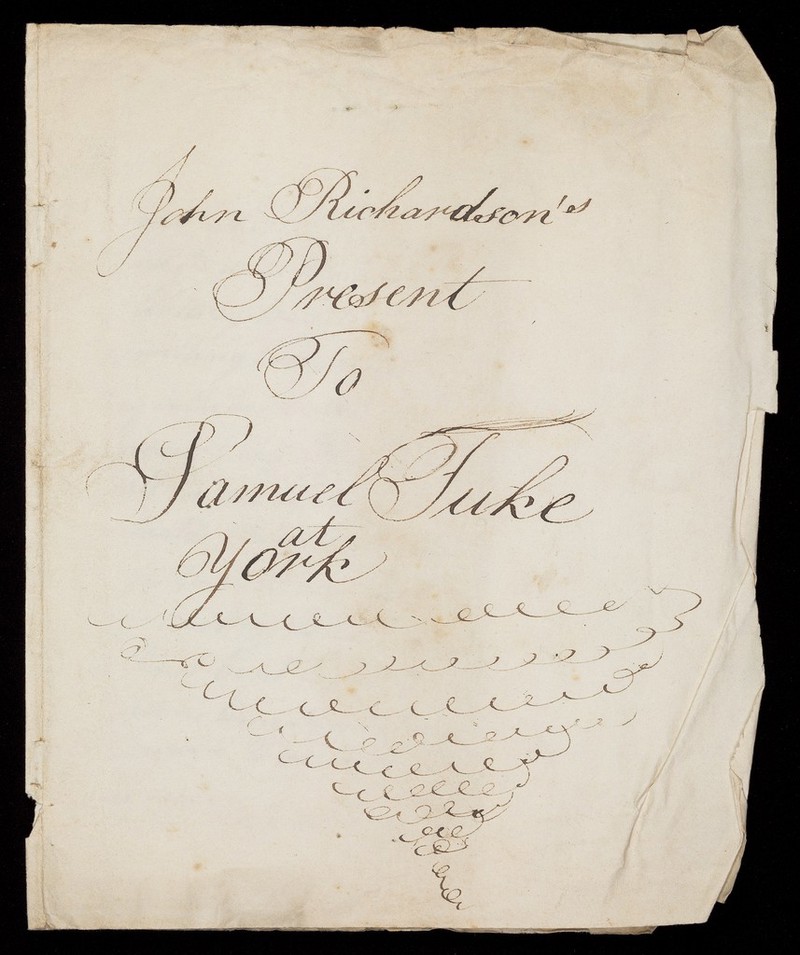 John Richardson's
Present
To
Samuel Tuke
at
York